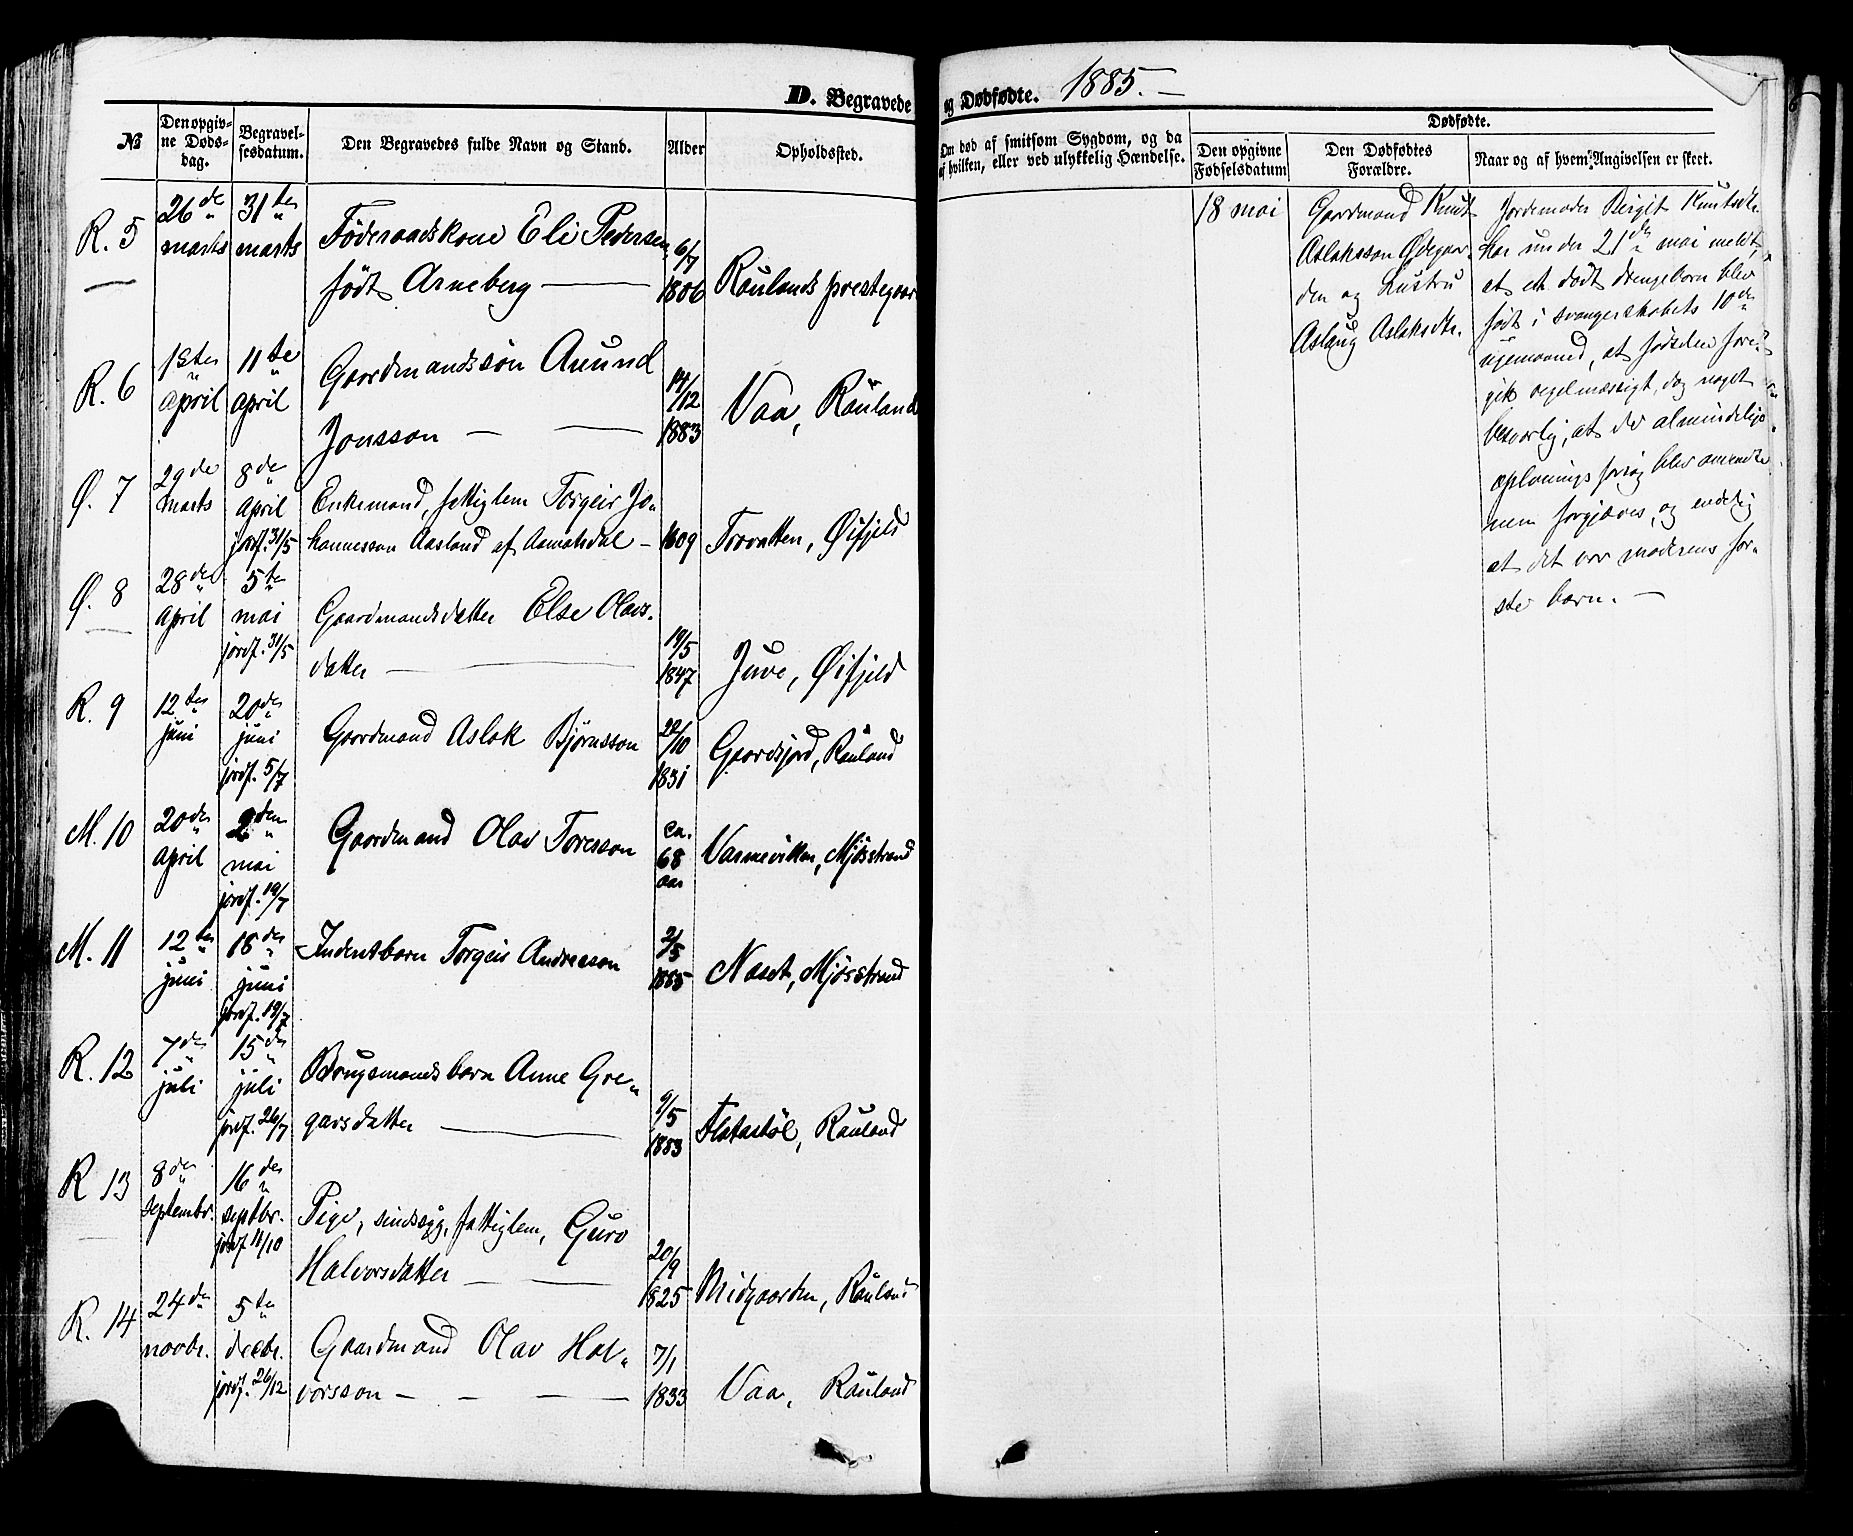 D. Begravede og Dødfødte. 1885.
№
Den opgivne Dødsdag.
Begravelsesdatum.
Den Begravedes fulde Navn og Stand.
Alder
Opholdssted.
Om død af smitsom Sygdom, og da
af hvilken, eller ved ulykkelig Hændelse.
Dødfødte.
Den opgivne
Fødselsdatum
Den Dødfødtes
Forældre.
Naar og af hvem Angivelsen er skeet.
R. 5
26de marts
31te marts
Föderaadskone Eli Pedersen,
født Arneberg
6/7 1806
Raulands prestegaar
R. 6
1ste april
11te april
Gaardmandssön Auund
Jonsson
14/12 1883
Vaa, Rauland
Ø. 7
29de marts
8de april
jordf. 31/5
Enkemand, fattiglem Torgeir Jo-
hannesson Aasland af Aamotsdal
1809
Trovatten, Øifjeld
Ø. 8
28de april
5te mai
jordf. 31/5
Gaardmandsdatter Else Olavs-
datter
19/5 1847
Juve, Øifjeld
R. 9
12te juni
20de juni
jordf. 5/7
Gaardmand Aslak Bjørnsson
1831
Gaardsjord, Rauland
M. 10
20de april
2den mai
jordf. 19/7
Gaardmand Olav Toresson
ca. 68 aar
Varmevikken, Mjøsstrand
M. 11
12te juni
18de juni
jordf. 19/7
Inderstbarn Torgeir Andresson
2/5 1885
Næset, Mjøsstrand
R. 12
7de juli
15de juli
jordf. 26/7
Brugsmands barn Anne Gre-
garsdatter
9/5 1883
Flatastöl, Rauland
R 13
8de septembr.
16de septbr.
jordf 11/10
Pige, sindssyg, fattiglem, Guro
Halvorsdatter
20/9 1825
Midgaarden, Rauland
R. 14
24de novbr.
5te decbr.
jordf. 26/12
Gaardmand Olav Hal-
vorsson
7/1 1833
Vaa, Rauland
18 mai
Gaardmand Knut
Aslaksson Ødegaar-
den og Hustru
Aslaug Aslaksdtr.
Jordemoder Birgit Knutsdtr.
har under 21de mai meldt,
at et dødt drengebarn blev
født i svangerskabets 10de
, at fødselen fore-
gik regelmæssigt, dog noget
besværlig, at de almindelige
oplivnings forsøg blev anvendte
men forgjæves, og endelig
at det var moderens før-
ste barn.